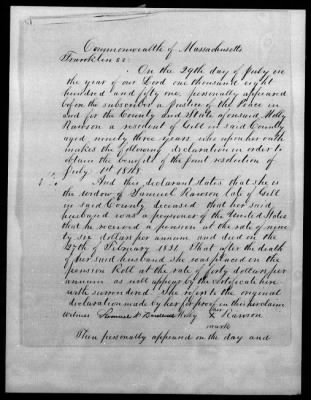 Commonwealth of Massachusetts
Franklin ss.
On the 29th day of July in
the year of our Lord one thousand eight
hundred and fifty one, personally appeared
before the subscriber a Justice of the Peace in
and for the County and State aforesaid Molly
Rawson a resident of Gill in said County
aged ninety three years who upon her oath
makes the following declaration in order to
obtain the benefit of the joint resolution of
July 1st 1848.
And this declarant states that she is
the widow of Samuel Rawson late of Gill
in said County deceased that her said
husband was a pensioner of the United States
that he received a pension at the rate of ninety
six dollars per annum and died on the
27th of February 1831. That after the death
of her said husband she was placed on the
pension Roll at the rate of forty dollars per
annum as will appear by the certificate here
with surrendered. She refers to the original
declaration made by her for proof in this her claim
Witness Samuel Molly her X Rawson
mark
Then personally appeared on the day and